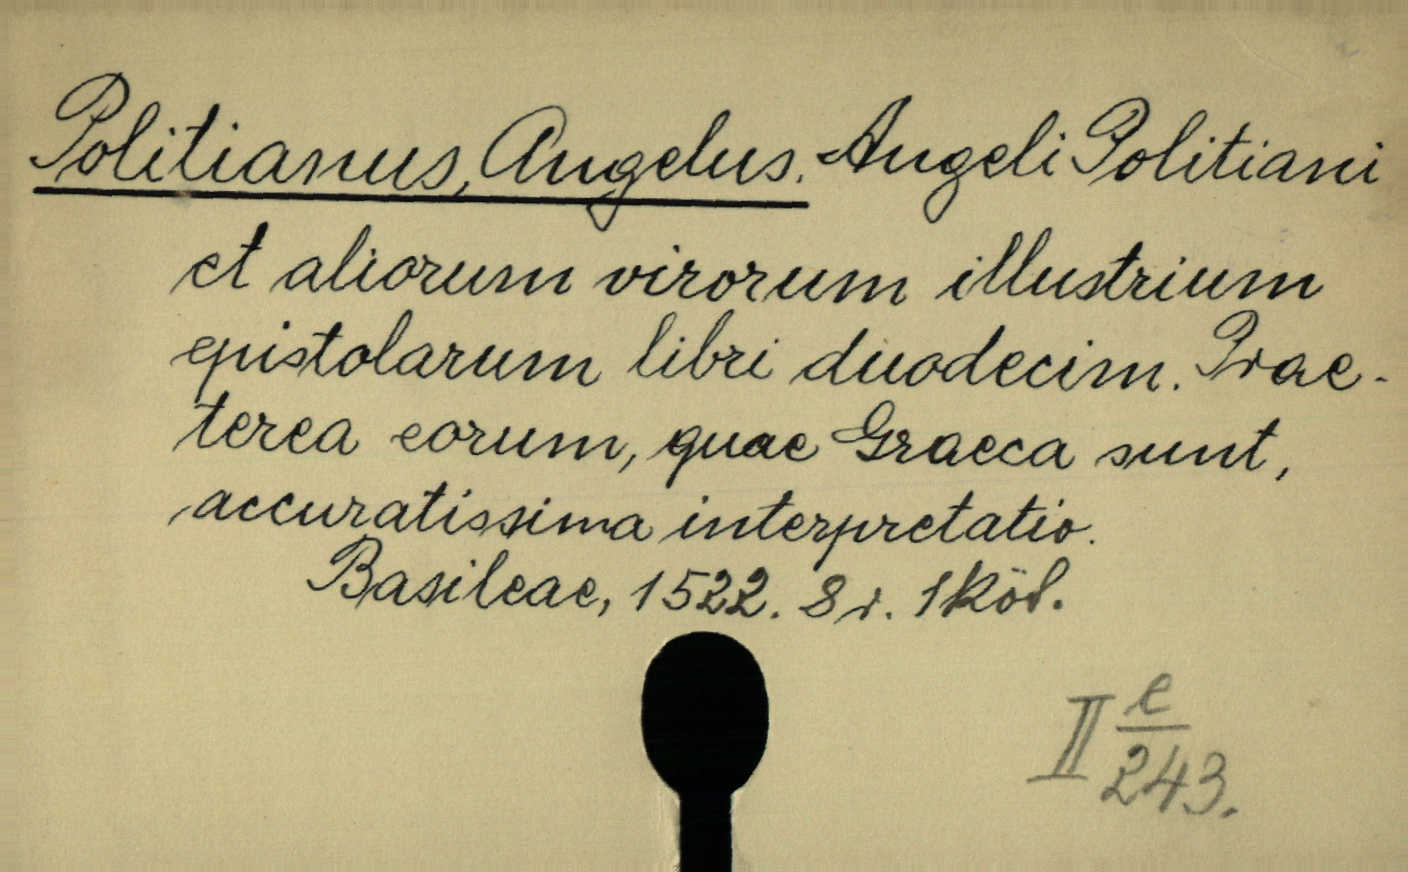 Politianus, Angelus. Angeli Politiani
et aliorum virorum illustrium
epistolarum libri duodecim. Prae-
terea eorum, quae Graeca sunt,
accuratissima interpretatio.
Basileae, 1522. 8 r. 1 köt.
II e/243.